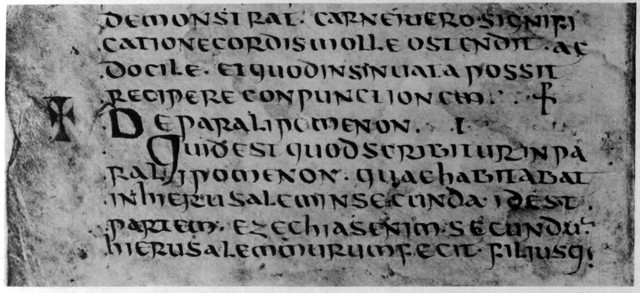 DEMONSTRAT. CARNEIVEROSIGNIFI
CATIONECORDISMOLLEOSTENDIT. AC
DOCILE. ETQUODINSINUATAPOSSIT
RECIPERECONPUNCTIONEM.
DEPARALIPOMENON. I.
QUIDESTQUODSCRIBITURINPA
RALIPOMENON. QUAEHABITABAT
INHIERUSALEMINSECUNDA. IDEST.
PARTEM. EZECHIASENIM. SECUNDU
HIERUSALEMMURUMFECIT. FILIUSQ.